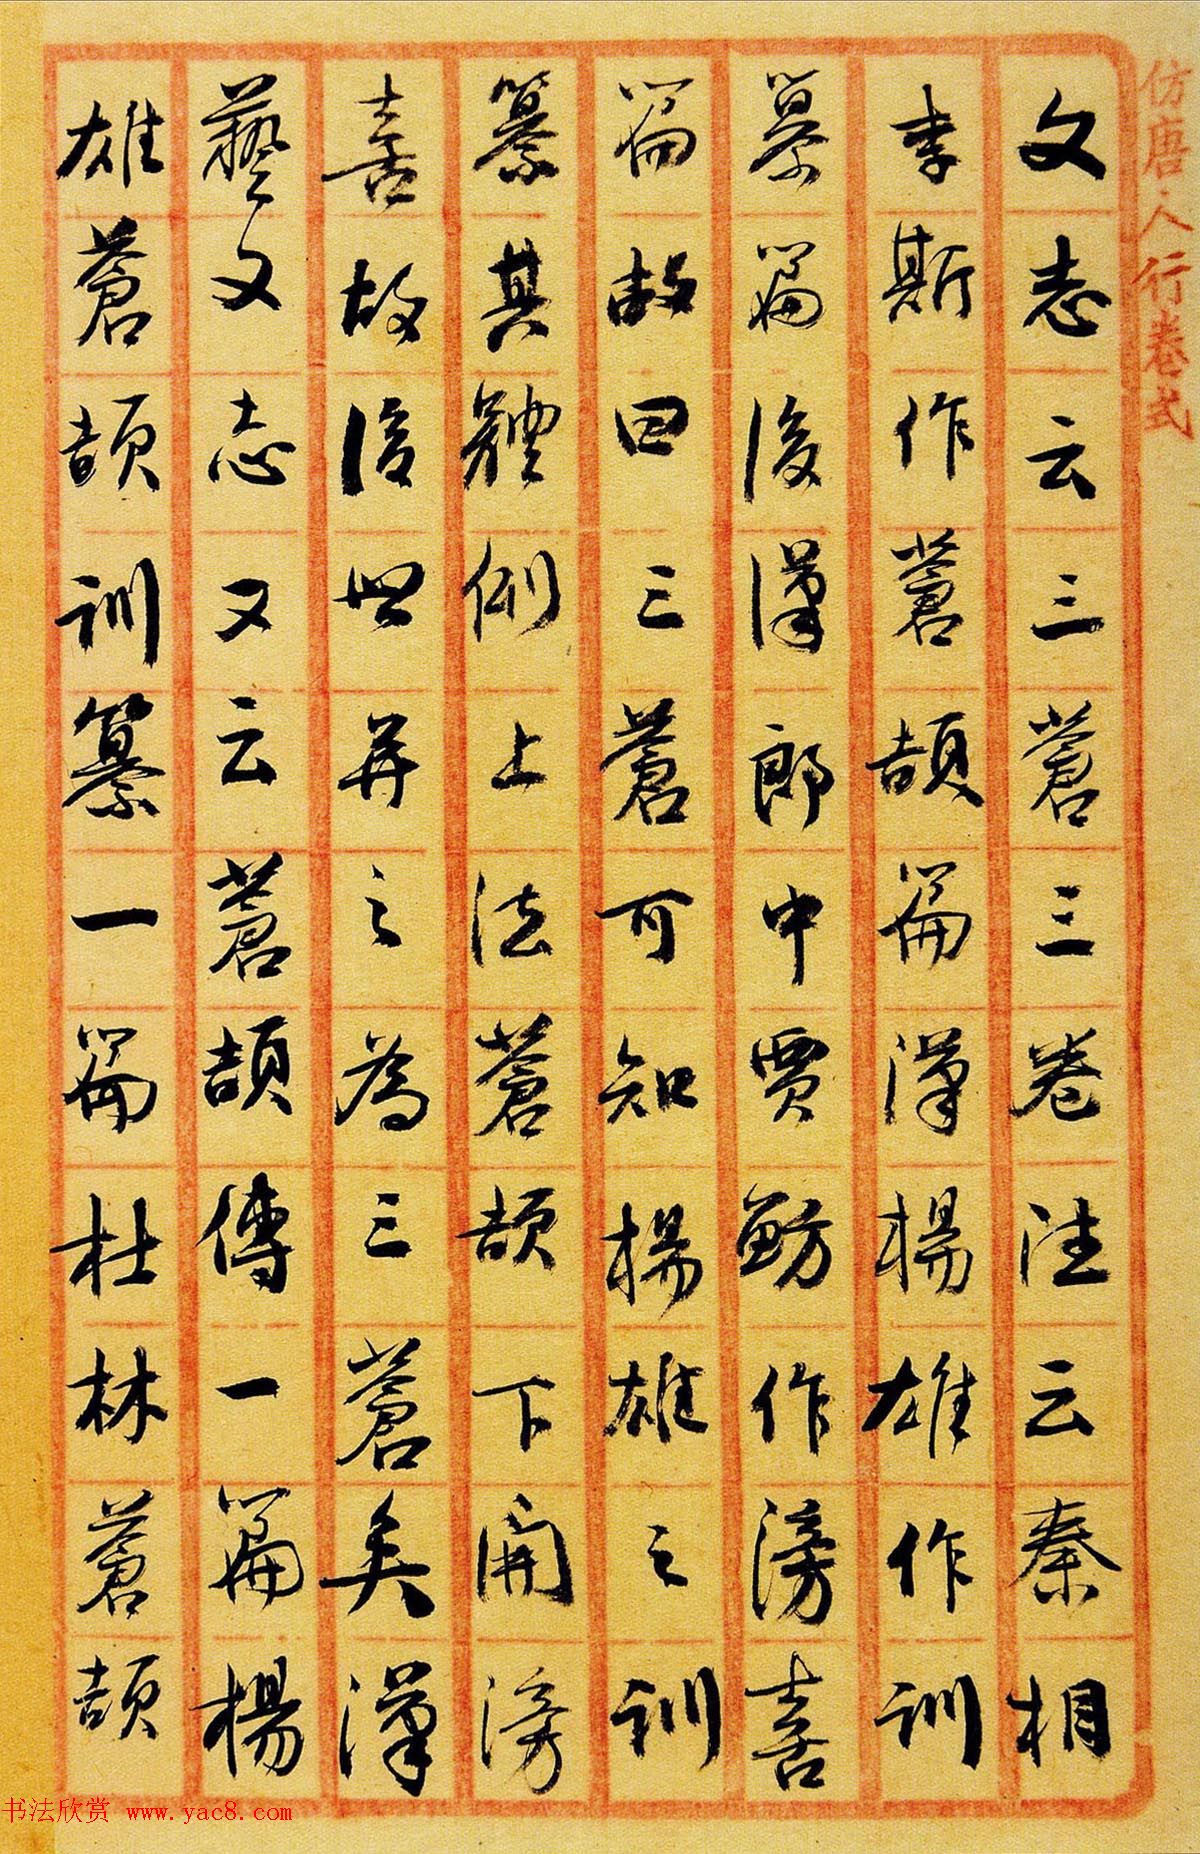 仿唐人行卷式
文志云三蒼三卷注云秦相
李斯作蒼頡篇漢楊雄作訓
纂篇後漢郎中賈魴作滂喜
篇故曰三蒼可知楊雄之訓
纂其體例上法蒼頡下開滂
喜故後世并之為三蒼矣漢
藝文志又云蒼頡傳一篇楊
雄蒼頡訓纂一篇杜林蒼頡
书法欣赏 www.yac8.com